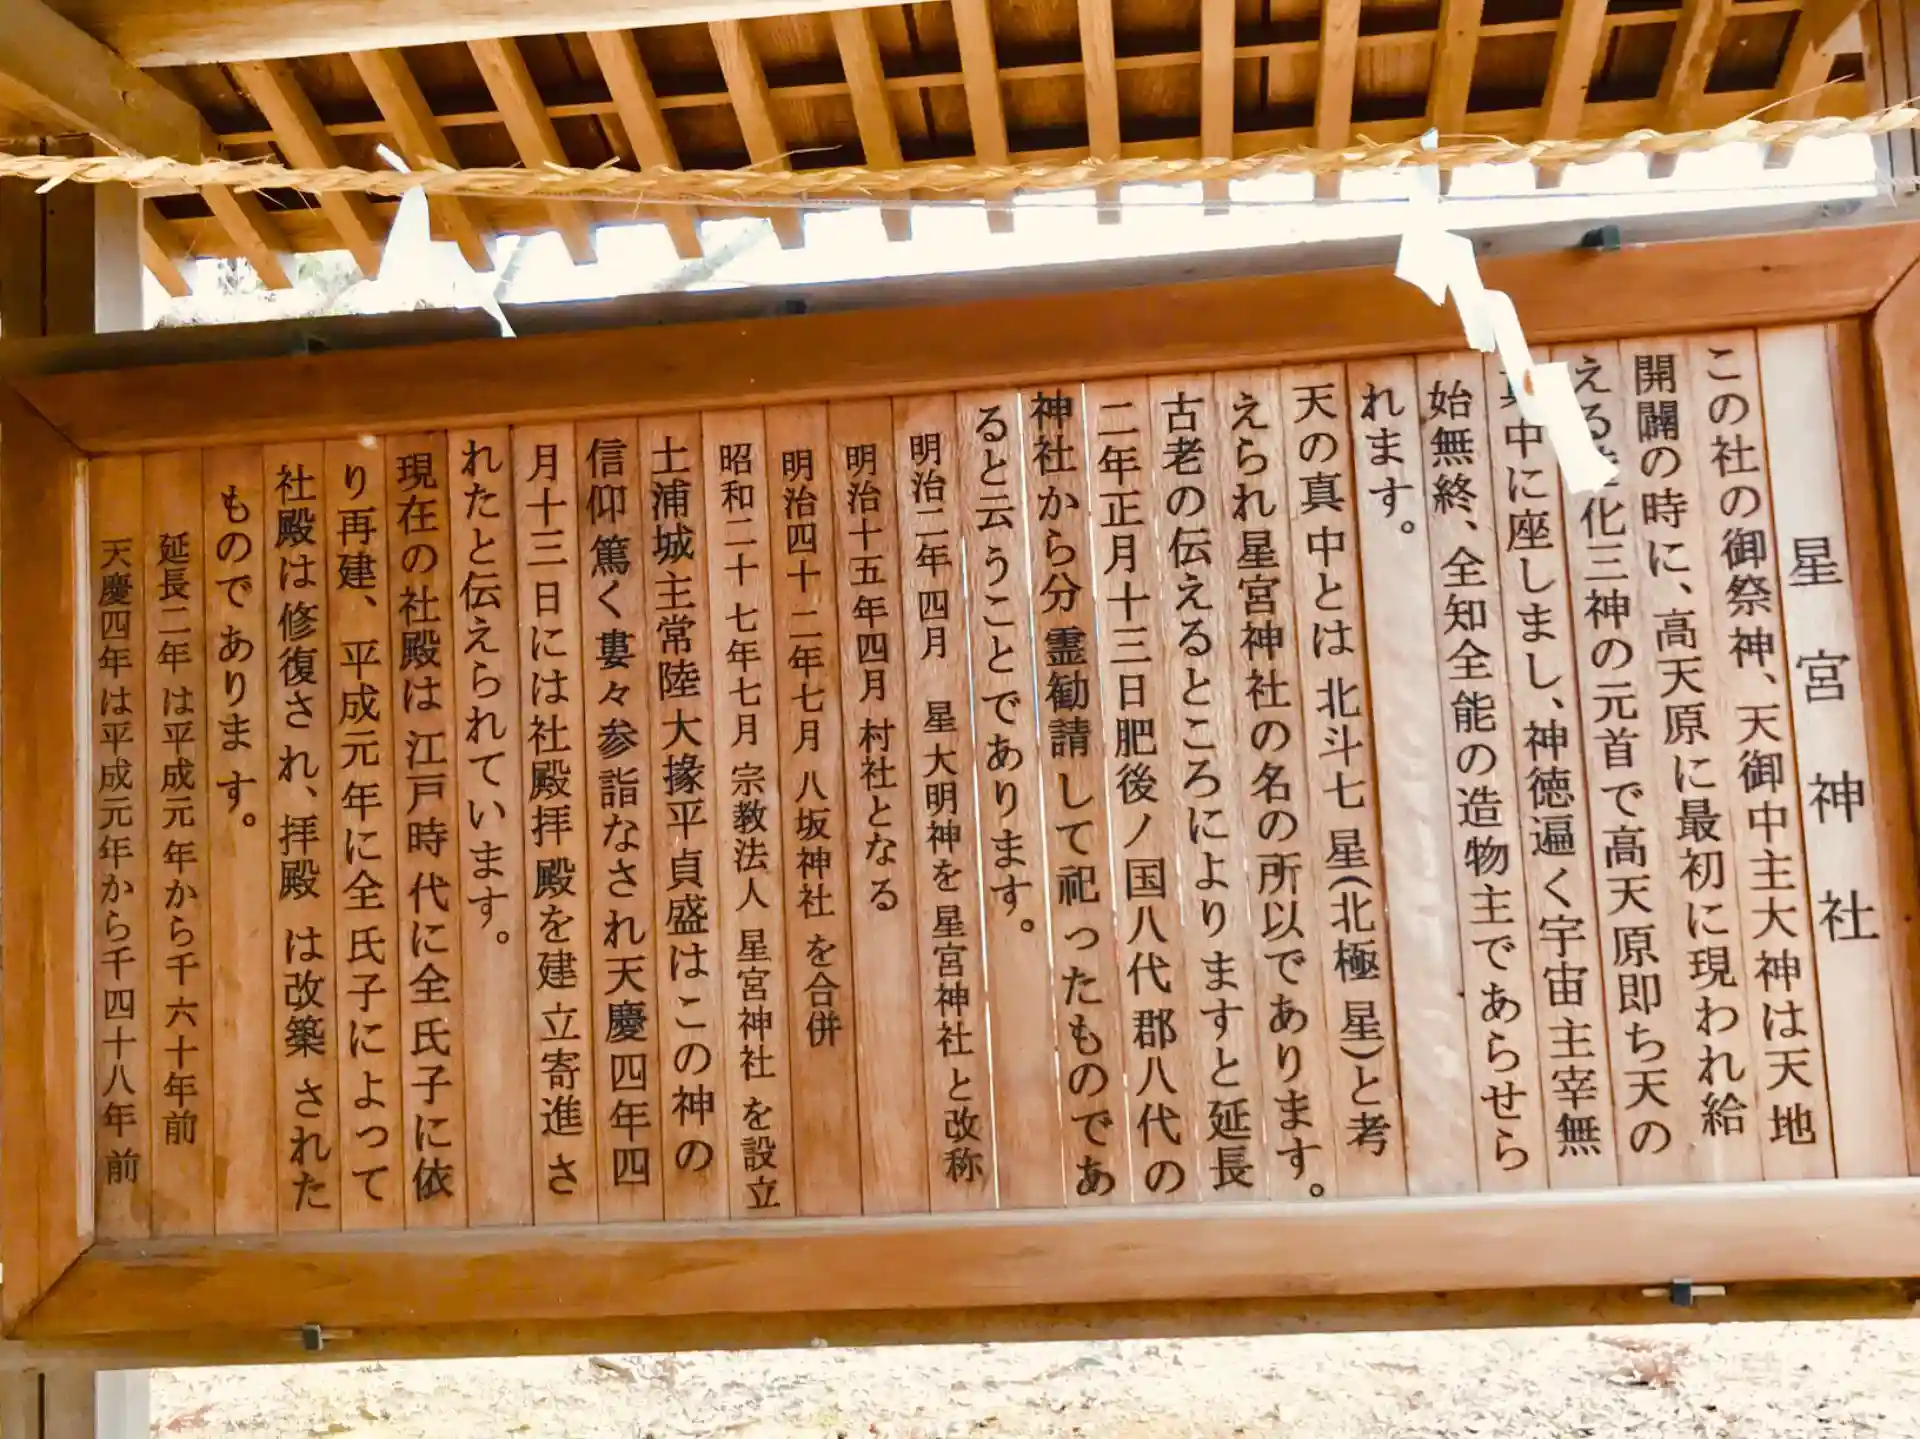 星宮神社
この社の御祭神、天御中主大神は天地
開闢の時に、高天原に最初に現われ給
える 化三神の元首で高天原即ち天の
中に座しまし、神徳遍く宇宙主宰無
始無終、全知全能の造物主であらせら
れます。
天の真中とは北斗七星(北極星)と考
えられ星宮神社の名の所以であります。
古老の伝えるところによりますと延長
二年正月十三日肥後ノ国八代郡八代の
神社から分霊勧請して祀ったものであ
ると云うことであります。
明治二年四月 星大明神を星宮神社と改称
明治十五年四月村社となる
明治四十二年七月八坂神社を合併
昭和二十七年七月宗教法人星宮神社を設立
土浦城主常陸大掾平貞盛はこの神の
信仰篤く婁々参詣なされ天慶四年四
月十三日には社殿拝殿を建立寄進さ
れたと伝えられています。
現在の社殿は江戸時代に全氏子に依
り再建、平成元年に全氏子によって
社殿は修復され、拝殿は改築された
ものであります。
延長二年は平成元年から千六十年前
天慶四年は平成元年から千四十八年前